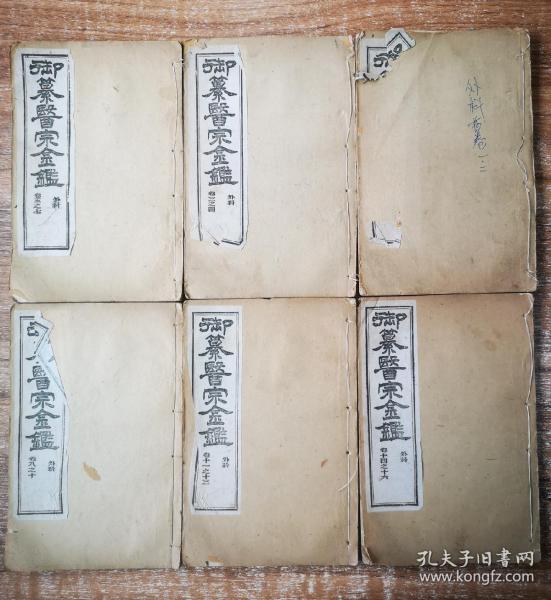 御纂醫宗金鑑
外科
卷五之七
御纂醫宗金鑑
外科
卷三之四
外科
一二
纂醫宗金鑑
外科
卷八之十
御纂醫宗金鑑
外科
卷十一之十三
御纂醫宗金鑑
外科
卷十四之十六
孔夫子旧书网
www.kongfz.com